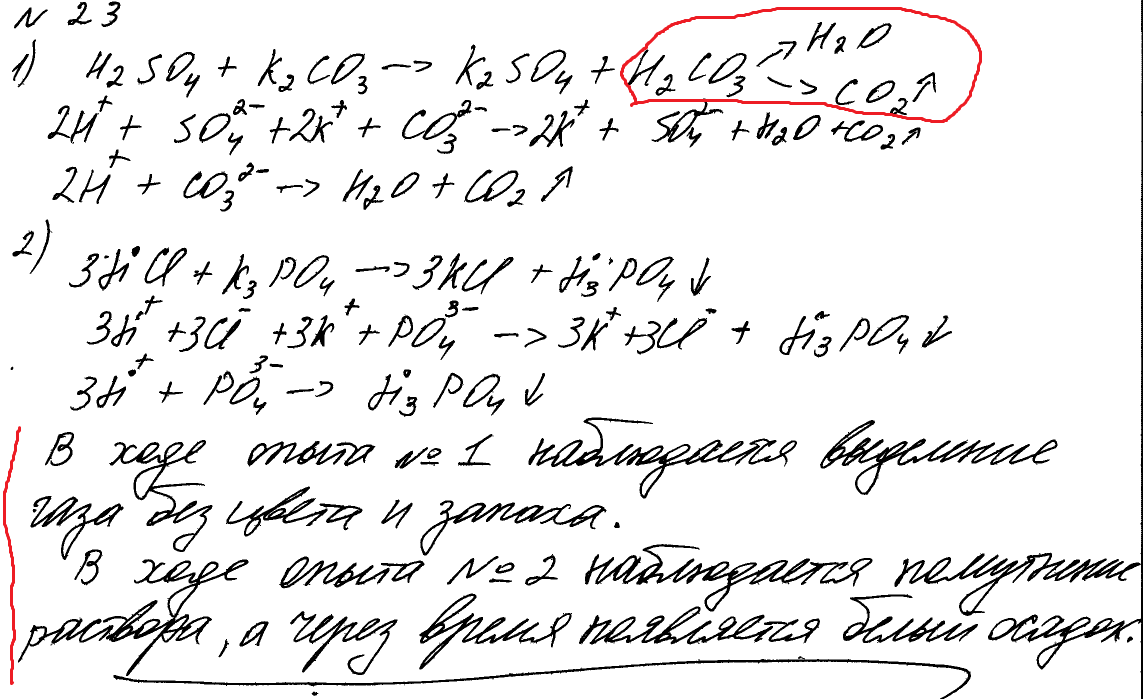 N 23
1) H₂SO₄ + K₂CO₃ → K₂SO₄ + H₂CO₃ ↗ H₂O ↘ CO₂↑
2H⁺ + SO₄²⁻ + 2K⁺ + CO₃²⁻ → 2K⁺ + SO₄²⁻ + H₂O + CO₂↑
2H⁺ + CO₃²⁻ → H₂O + CO₂↑
2) 3LiCl + K₃PO₄ → 3KCl + Li₃PO₄↓
3Li⁺ + 3Cl⁻ + 3K⁺ + PO₄³⁻ → 3K⁺ + 3Cl⁻ + Li₃PO₄↓
3Li⁺ + PO₄³⁻ → Li₃PO₄↓
В ходе опыта № 1 наблюдается выделение
газа без цвета и запаха.
В ходе опыта № 2 наблюдается помутнение
раствора, а через время появляется белый осадок.